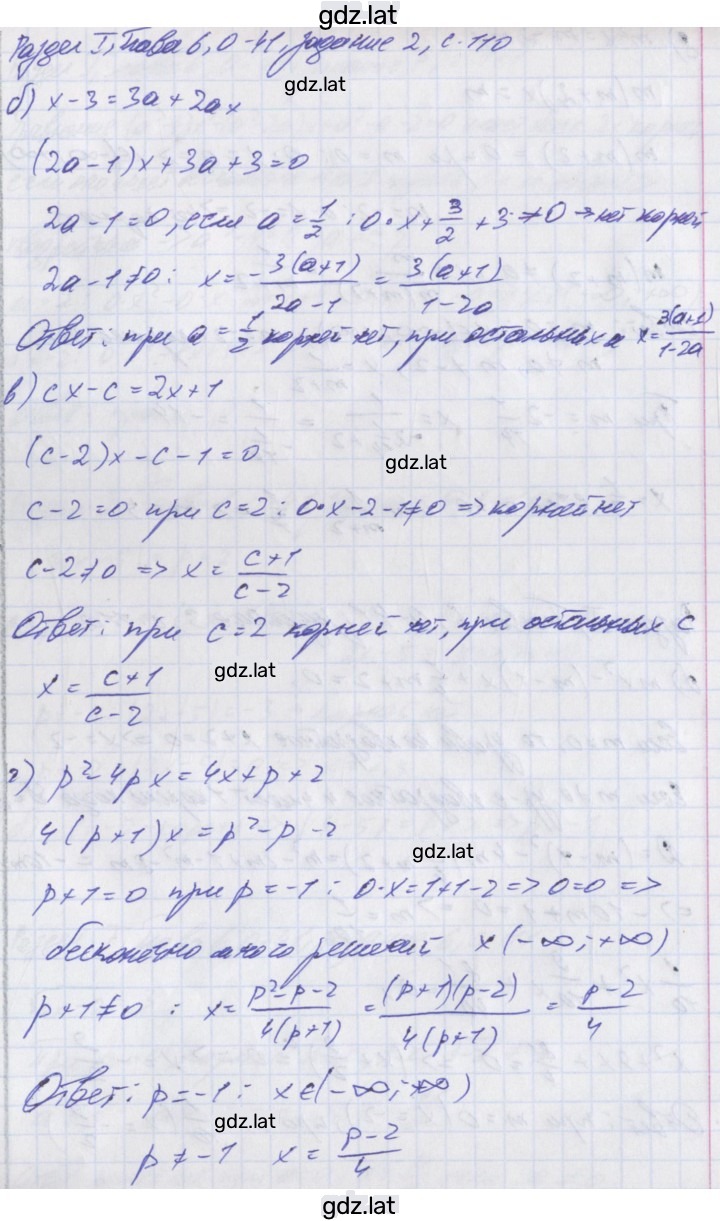 gdz.lat
Раздел I, Глава 6, О-41, задание 2, с. 110
gdz.lat
б) x-3=3a+2ax
(2a-1)x+3a+3=0
2a-1=0, если a=1/2 : 0·x+3/2+3≠0 ⇒ нет корней
2a-1≠0: x=-3(a+1)/(2a-1)=3(a+1)/(1-2a)
Ответ: при a=1/2 корней нет, при остальных a x=3(a+1)/(1-2a)
в) cx-c=2x+1
(c-2)x-c-1=0
gdz.lat
c-2=0 при c=2: 0·x-2-1≠0 => корней нет
c-2≠0 => x=(c+1)/(c-2)
Ответ: при c=2 корней нет, при остальных c
gdz.lat
x=(c+1)/(c-2)
г) p²-4px=4x+p+2
4(p+1)x=p²-p-2
gdz.lat
p+1=0 при p=-1: 0·x=1+1-2=>0=0=>
бесконечно много решений x(-∞;+∞)
p+1≠0: x=(p²-p-2)/(4(p+1))=((p+1)(p-2))/(4(p+1))=(p-2)/4
Ответ: p=-1: x∈(-∞;+∞)
gdz.lat
p≠-1 x=(p-2)/4
gdz.lat